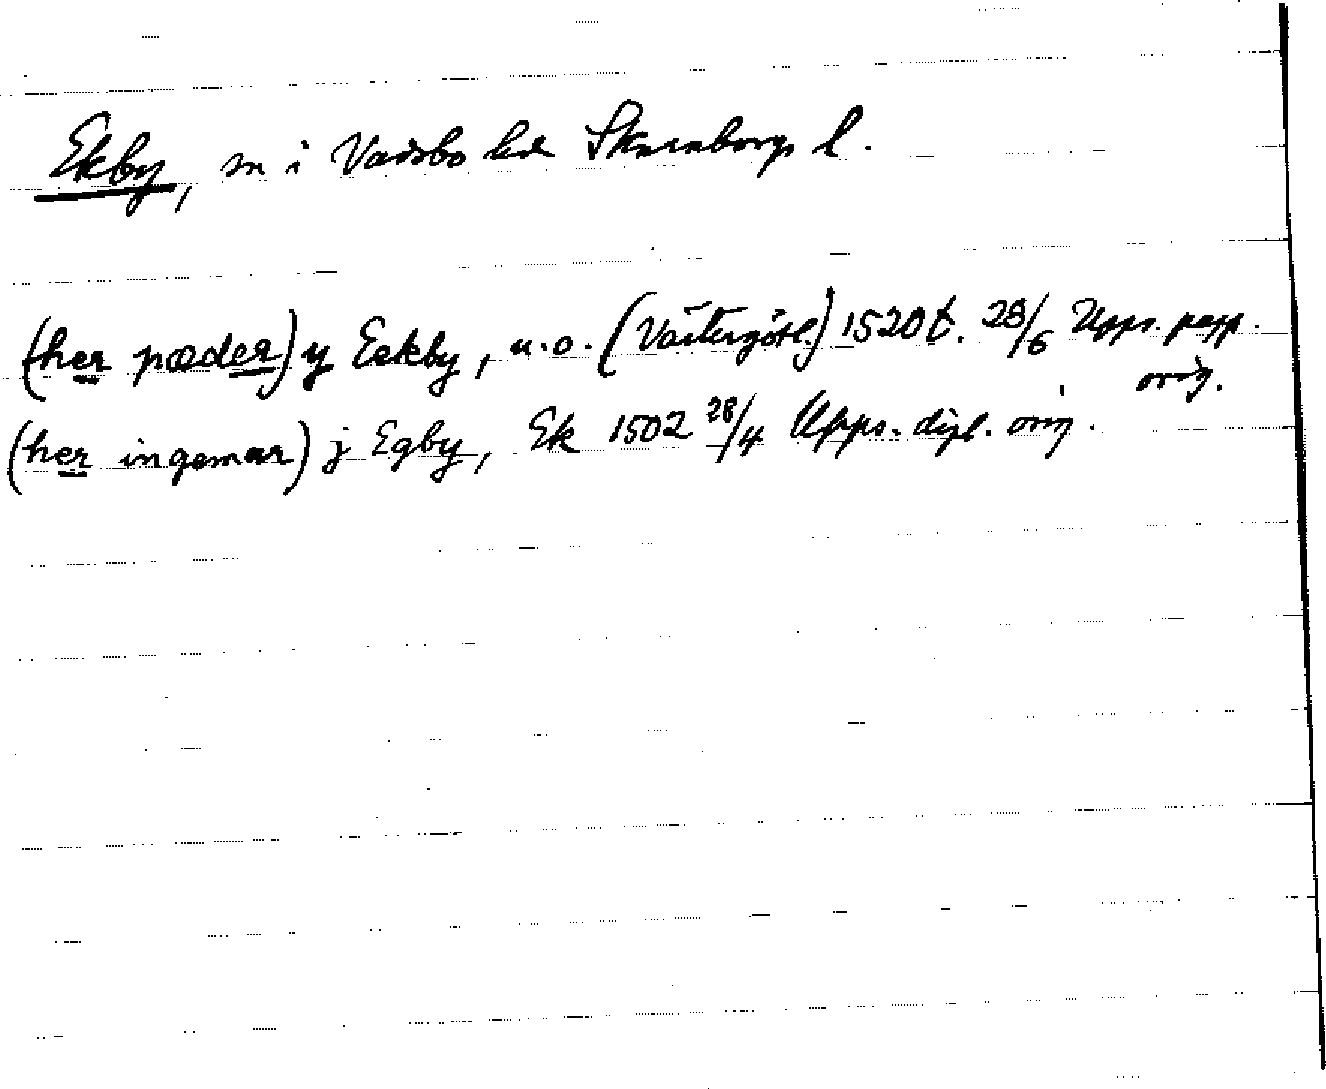 Ekby, sn i Vadsbo hd Skaraborgs l.
(her pæder) y Eekby, u.o. (Västergötl.) 1520 t. 28/6 Upps. papp.
orig.
(her ingemar) j Egby, Ek 1502 28/4 Upps. dipl. orig.